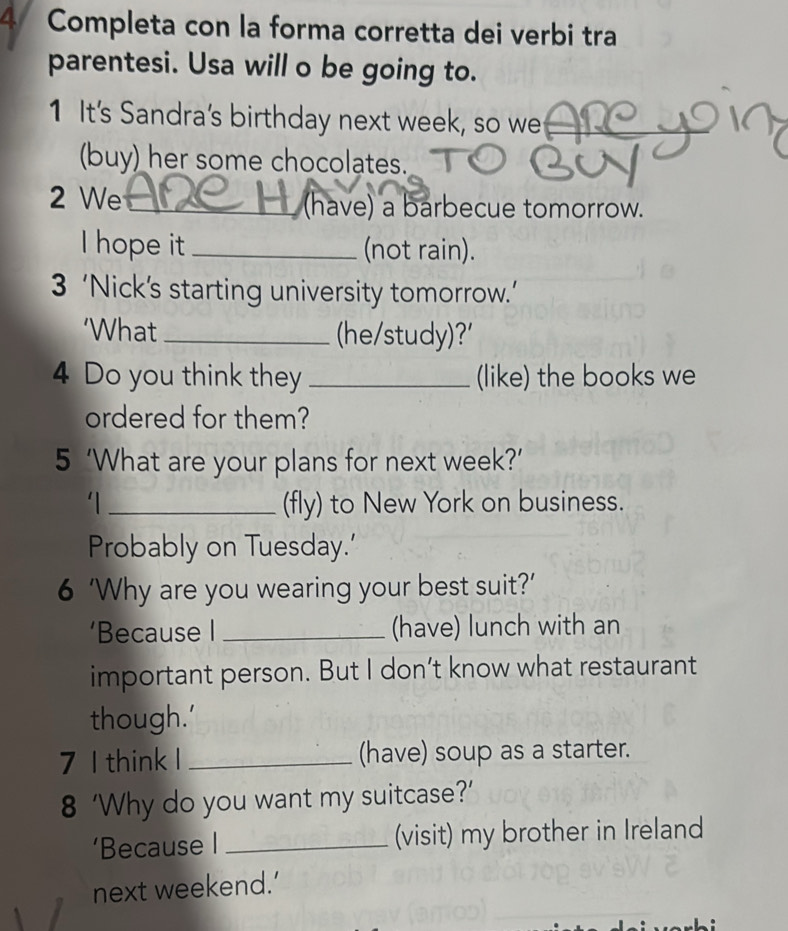 4 Completa con la forma corretta dei verbi tra
parentesi. Usa will o be going to.
1 It's Sandra's birthday next week, so we ARE going
(buy) her some chocolates. TO BUY
2 We ARE HAVing (have) a barbecue tomorrow.
I hope it ____________ (not rain).
3 'Nick's starting university tomorrow.'
'What ____________ (he/study)?'
4 Do you think they ____________ (like) the books we
ordered for them?
5 'What are your plans for next week?'
'I ____________ (fly) to New York on business.
Probably on Tuesday.'
6 'Why are you wearing your best suit?'
'Because I ____________ (have) lunch with an
important person. But I don't know what restaurant
though.'
7 I think I ____________ (have) soup as a starter.
8 'Why do you want my suitcase?'
'Because I ____________ (visit) my brother in Ireland
next weekend.'